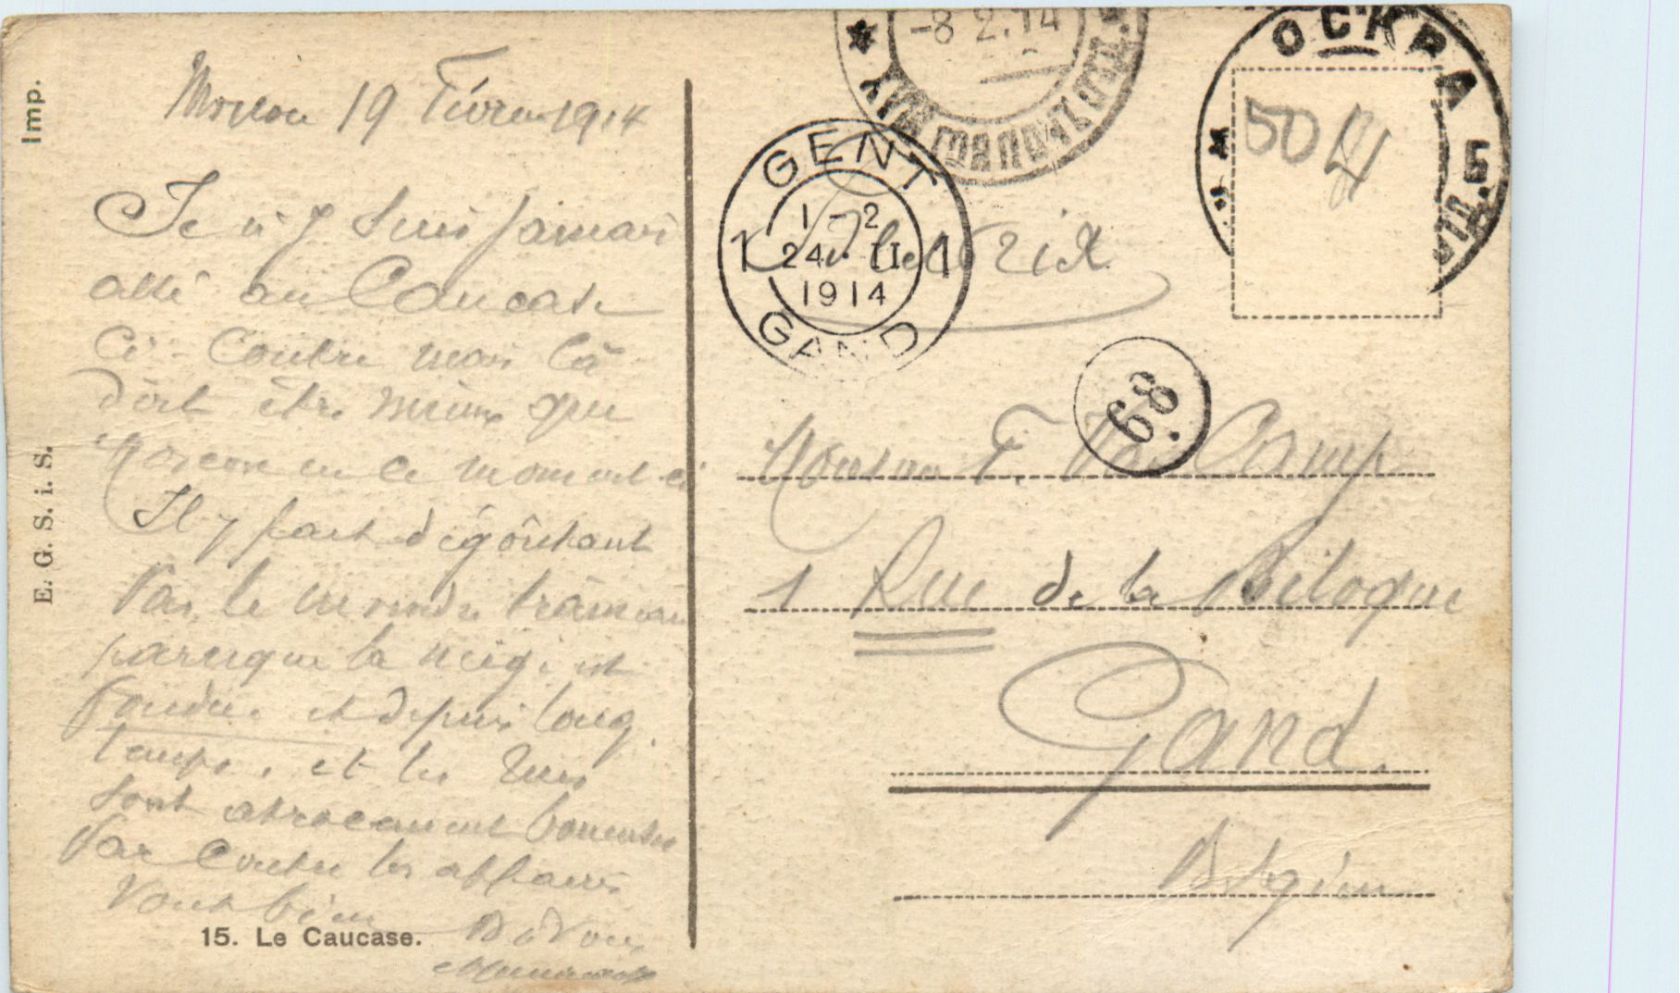 Imp.
E. G. S. i. S.
Moscou 19 Févr. 1914
Je n'y suis jamais
allé au Caucase
ci-contre mais là
doit être mieux que
Moscou en ce moment-ci
Il y fait dégoûtant
Pas le moindre traineau
parceque la neige est
fondue et depuis long
temps, et les rues
sont atrocement boueuses
Par contre les affaires
vont bien
15. Le Caucase.
-8 2.14
ОСКВА
50
GENT
1-2
1 24 II 1
1914
GAND
68.
Monsieur F. Camp
1 Rue de la Biloque
Gand.
Belgique